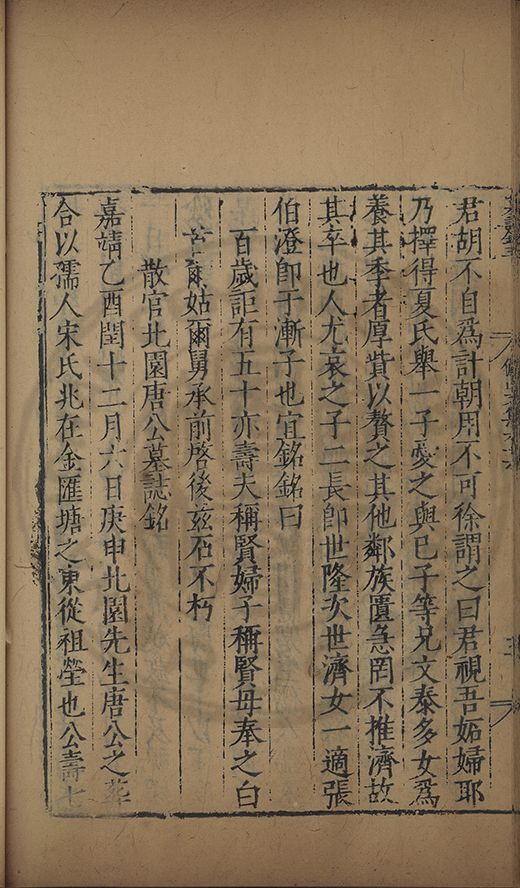 君胡不自爲計朝用不可徐謂之曰君視吾妬婦耶
乃擇得夏氏舉一子愛之與已子等兄文泰多女爲
養其季者厚貲以贅之其他鄰族匱急罔不推濟故
其卒也人尤哀之子二長卽世隆次世濟女一適張
伯澄卽于漸子也宜銘銘曰
百歲詎有五十亦壽夫稱賢婦子稱賢母奉之白
首爾姑爾舅承前啓後玆石不朽
散官北園唐公墓誌銘
嘉靖乙酉閏十二月六日庚申北園先生唐公之葬
合以孺人宋氏兆在金匯塘之東從祖塋也公壽七